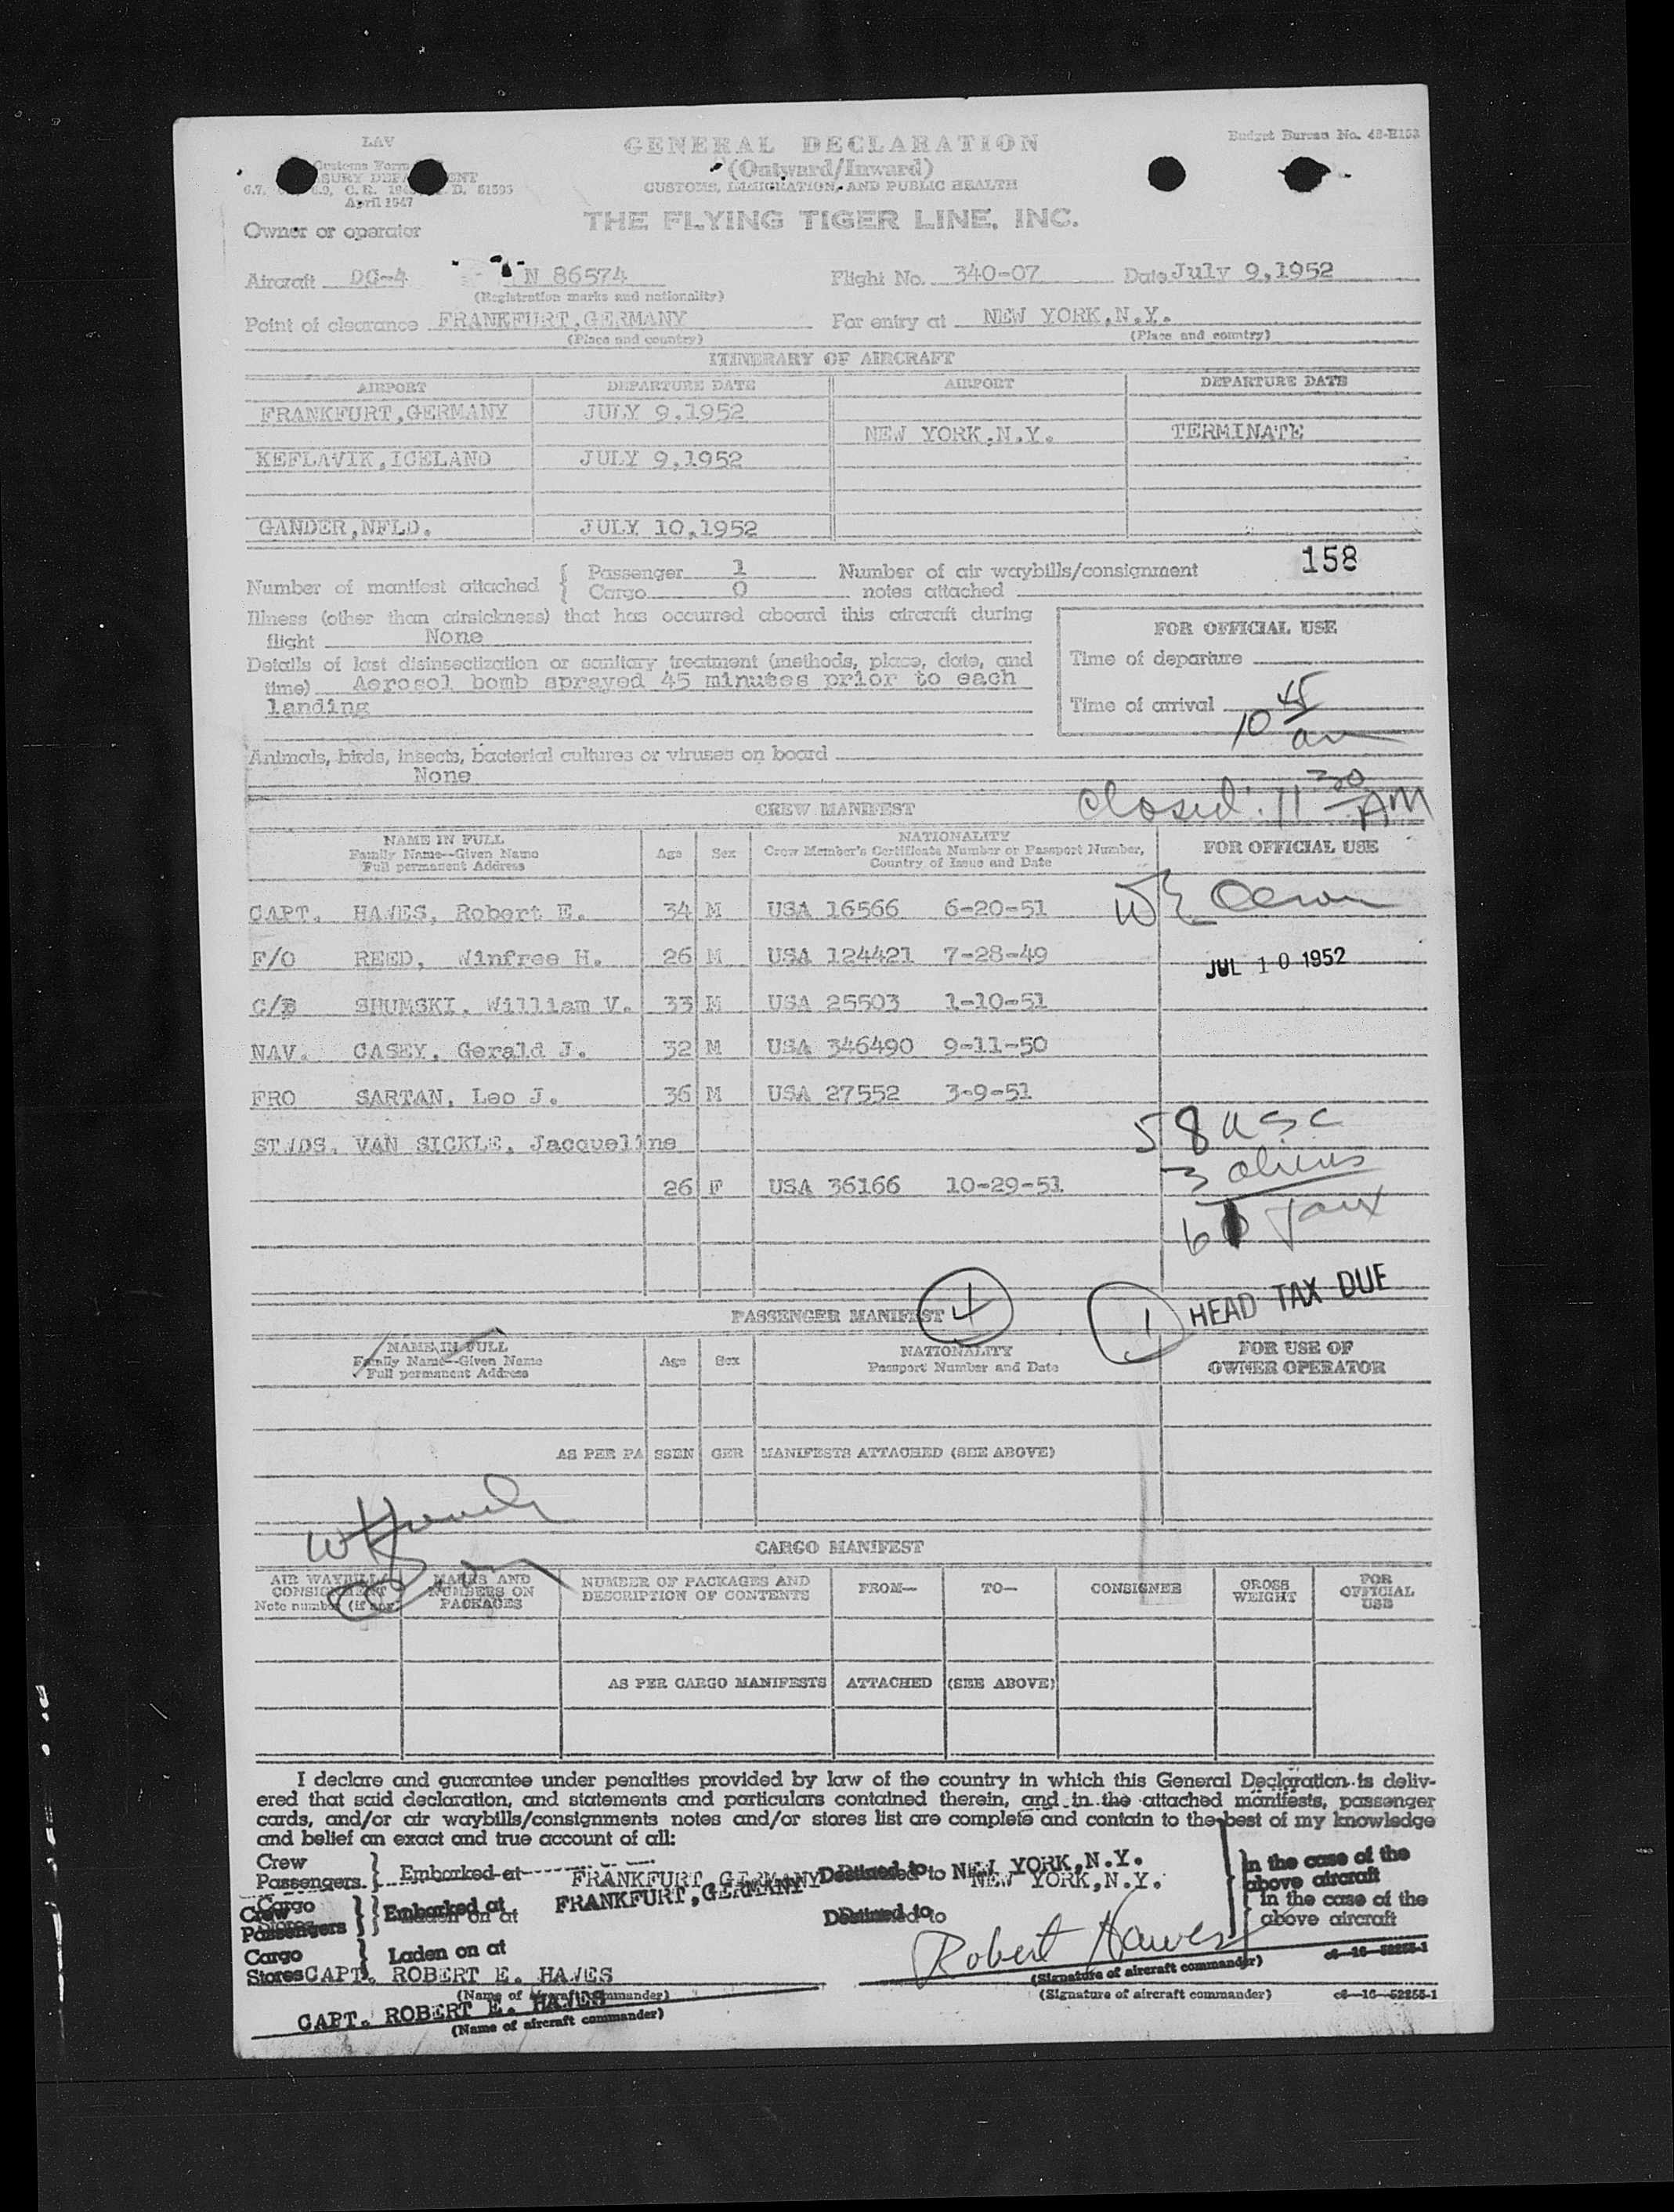 LAV
GENERAL DECLARATION
Budget Bureau No. 48-R153
(Outward/Inward)
Customs Form
CUSTOMS, IMMIGRATION, AND PUBLIC HEALTH
April 1947
THE FLYING TIGER LINE, INC.
Owner or operator
Aircraft DC-4 N 86574 Flight No. 340-07 Date July 9,1952
(Registration marks and nationality)
Point of clearance FRANKFURT,GERMANY For entry at NEW YORK,N.Y.
(Place and country) (Place and country)
ITINERARY OF AIRCRAFT
AIRPORT DEPARTURE DATE AIRPORT DEPARTURE DATE
FRANKFURT,GERMANY JULY 9,1952
NEW YORK,N.Y. TERMINATE
KEFLAVIK,ICELAND JULY 9,1952
GANDER,NFLD. JULY 10,1952
158
Number of manifest attached { Passenger 1 Number of air waybills/consignment
Cargo 0 notes attached
Illness (other than airsickness) that has occurred aboard this aircraft during
flight None
FOR OFFICIAL USE
Details of last disinsectization or sanitary treatment (methods, place, date, and
time) Aerosol bomb sprayed 45 minutes prior to each
landing
Time of departure
Time of arrival 10 45 am
Animals, birds, insects, bacterial cultures or viruses on board
None
closed: 11 30 AM
CREW MANIFEST
NAME IN FULL
Family Name--Given Name
Full permanent Address
Age Sex
NATIONALITY
Crew Member's Certificate Number or Passport Number,
Country of Issue and Date
FOR OFFICIAL USE
CAPT. HAWES, Robert E. 34 M USA 16566 6-20-51
F/O REED, Winfree H. 26 M USA 124421 7-28-49
JUL 10 1952
SHUMSKI, William V. 33 M USA 25503 1-10-51
NAV. CASEY, Gerald J. 32 M USA 346490 9-11-50
FRO SARTAN, Leo J. 36 M USA 27552 3-9-51
STWDS. VAN SICKLE, Jacqueline
26 F USA 36166 10-29-51
58 USC
3 aliens
61 pax
PASSENGER MANIFEST 4 1 HEAD TAX DUE
NAME IN FULL
Family Name--Given Name
Full permanent Address
Age Sex
NATIONALITY
Passport Number and Date
FOR USE OF
OWNER OPERATOR
AS PER PASSENGER MANIFESTS ATTACHED (SEE ABOVE)
CARGO MANIFEST
AIR WAYBILL
CONSIGNMENT
Note number (if any)
MARKS AND
NUMBERS ON
PACKAGES
NUMBER OF PACKAGES AND
DESCRIPTION OF CONTENTS
FROM— TO— CONSIGNEE
GROSS
WEIGHT
FOR
OFFICIAL
USE
AS PER CARGO MANIFESTS ATTACHED (SEE ABOVE)
I declare and guarantee under penalties provided by law of the country in which this General Declaration is deliv-
ered that said declaration, and statements and particulars contained therein, and in the attached manifests, passenger
cards, and/or air waybills/consignments notes and/or stores list are complete and contain to the best of my knowledge
and belief an exact and true account of all:
Crew
Passengers } Embarked at FRANKFURT,GERMANY Destined to NEW YORK,N.Y.
In the case of the
above aircraft
Crew
Passengers } Embarked at FRANKFURT,GERMANY Destined to NEW YORK,N.Y.
In the case of the
above aircraft
Cargo
Stores } Laden on at
CAPT. ROBERT E. HAWES Robert Hawes
(Name of aircraft commander) (Signature of aircraft commander) c6—16—52255-1
CAPT. ROBERT E. HAWES
(Name of aircraft commander) (Signature of aircraft commander) c6—16—52255-1